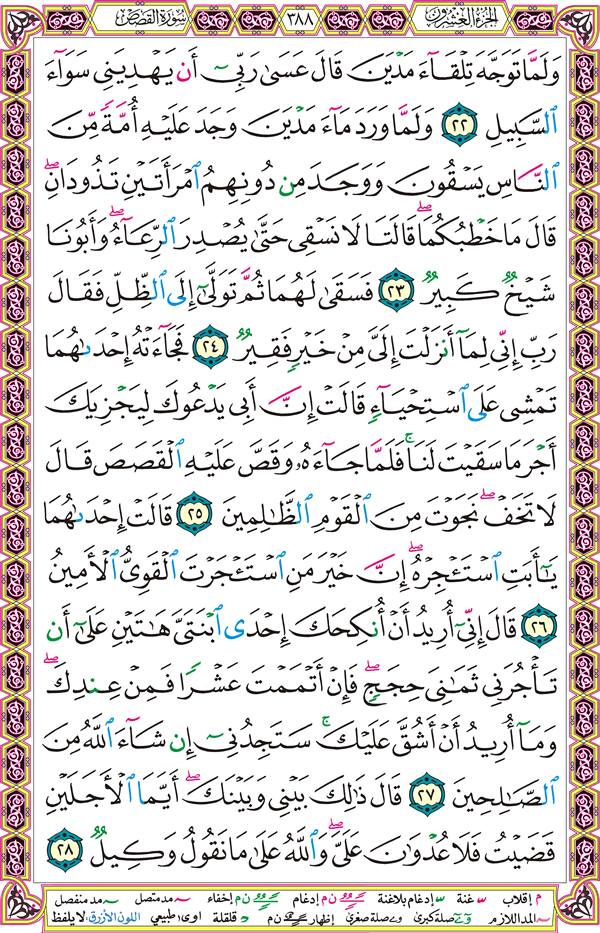 الجزء العشرون ٣٨٨ سورة القصص
وَلَمَّا تَوَجَّهَ تِلْقَآءَ مَدْيَنَ قَالَ عَسَىٰ رَبِّىٓ أَن يَهْدِيَنِى سَوَآءَ
ٱلسَّبِيلِ ٢٢ وَلَمَّا وَرَدَ مَآءَ مَدْيَنَ وَجَدَ عَلَيْهِ أُمَّةً مِّنَ
ٱلنَّاسِ يَسْقُونَ وَوَجَدَ مِن دُونِهِمُ ٱمْرَأَتَيْنِ تَذُودَانِ ۖ
قَالَ مَا خَطْبُكُمَا ۖ قَالَتَا لَا نَسْقِى حَتَّىٰ يُصْدِرَ ٱلرِّعَآءُ ۖ وَأَبُونَا
شَيْخٌ كَبِيرٌ ٢٣ فَسَقَىٰ لَهُمَا ثُمَّ تَوَلَّىٰٓ إِلَى ٱلظِّلِّ فَقَالَ
رَبِّ إِنِّى لِمَآ أَنزَلْتَ إِلَىَّ مِنْ خَيْرٍ فَقِيرٌ ٢٤ فَجَآءَتْهُ إِحْدَىٰهُمَا
تَمْشِى عَلَى ٱسْتِحْيَآءٍ قَالَتْ إِنَّ أَبِى يَدْعُوكَ لِيَجْزِيَكَ
أَجْرَ مَا سَقَيْتَ لَنَا ۚ فَلَمَّا جَآءَهُۥ وَقَصَّ عَلَيْهِ ٱلْقَصَصَ قَالَ
لَا تَخَفْ ۖ نَجَوْتَ مِنَ ٱلْقَوْمِ ٱلظَّـٰلِمِينَ ٢٥ قَالَتْ إِحْدَىٰهُمَا
يَـٰٓأَبَتِ ٱسْتَـْٔجِرْهُ ۖ إِنَّ خَيْرَ مَنِ ٱسْتَـْٔجَرْتَ ٱلْقَوِىُّ ٱلْأَمِينُ
٢٦ قَالَ إِنِّىٓ أُرِيدُ أَنْ أُنكِحَكَ إِحْدَى ٱبْنَتَىَّ هَـٰتَيْنِ عَلَىٰٓ أَن
تَأْجُرَنِى ثَمَـٰنِىَ حِجَجٍ ۖ فَإِنْ أَتْمَمْتَ عَشْرًا فَمِنْ عِندِكَ ۖ
وَمَآ أُرِيدُ أَنْ أَشُقَّ عَلَيْكَ ۚ سَتَجِدُنِىٓ إِن شَآءَ ٱللَّهُ مِنَ
ٱلصَّـٰلِحِينَ ٢٧ قَالَ ذَٰلِكَ بَيْنِى وَبَيْنَكَ ۖ أَيَّمَا ٱلْأَجَلَيْنِ
قَضَيْتُ فَلَا عُدْوَٰنَ عَلَىَّ ۖ وَٱللَّهُ عَلَىٰ مَا نَقُولُ وَكِيلٌ ٢٨
م إقلاب غنة إدغام بلاغنة ن م إدغام ن م إخفاء مد متصل مد منفصل
المد اللازم صلة كبرى صلة صغرى إظهار ن م قلقلة اوى طبيعي اللون الأزرق: لا يلفظ